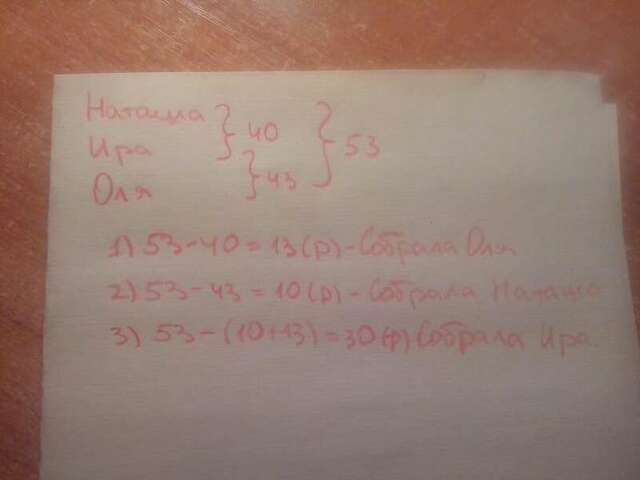 Наташа } 40 } 53
Ира
Оля } 43
1) 53-40=13(р)-Собрала Оля
2) 53-43=10(р)-Собрала Наташа
3) 53-(10+13)=30(р) Собрала Ира.